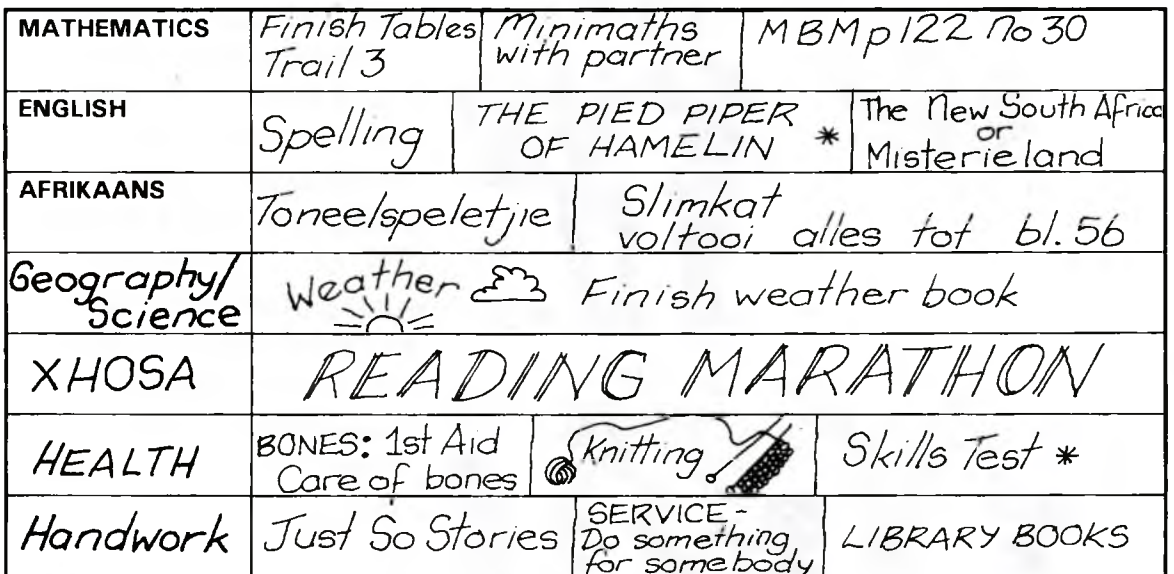 MATHEMATICS
Finish Tables
Trail 3
Minimaths
with partner
MBM p122 No 30
ENGLISH
Spelling
THE PIED PIPER
OF HAMELIN *
The New South Africa
or
Misterieland
AFRIKAANS
Toneelspeletjie
Slimkat
voltooi alles tot bl. 56
Geography/
Science
Weather
Finish weather book
XHOSA
READING MARATHON
HEALTH
BONES: 1st Aid
Care of bones
Knitting
Skills Test *
Handwork
Just So Stories
SERVICE -
Do something
for somebody
LIBRARY BOOKS